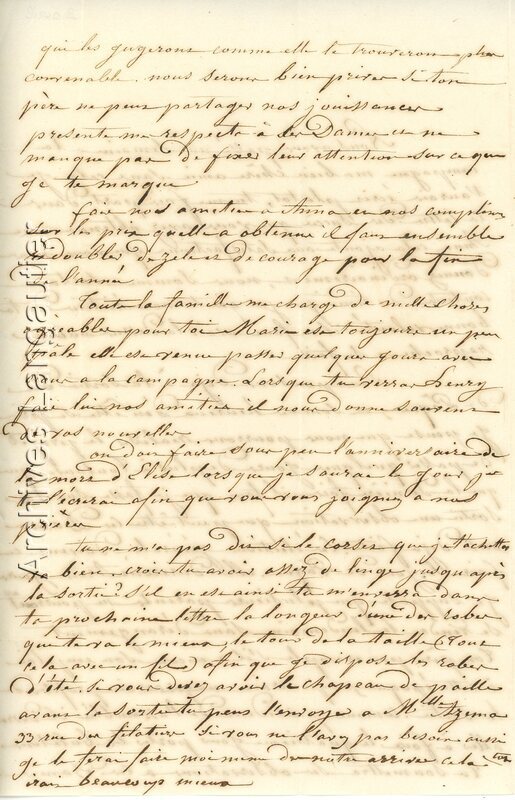 qui les gugerons comme elle le trouveron plus
convenable. nous serons bien priver si ton
père ne peux partager nos jouissances
presente mes respects à ces Dames et ne
manque pas de fixer leur attention sur ce que
je te marque
fais nos amities a Anna et nos complim
sur les prix quelle a obtenu il faus ensemble
redoubler de zele et de courage pour la fin
de l'année
Toute la famille me charge de mille choses
agréables pour toi Marie est toujours un peu
frêle elle est venue passer quelque jours avec
nous a la campagne. Lorsque tu verras Henry
fais lui nos amities il nous donne souvent
de vos nouvelles
on doit faire sous peu l'anniversaire de
la mort d'Elise lorsque je saurai le jour je
t'écrirai afin que vous vous joignez a nos
prières
tu ne m'a pas dis si le corset que je t'achettes
va bien, crois tu avoir assez de linge jusqu'après
la sortie? s'il en est ainsi tu m'enverra dans
ta prochaine lettre la longeur d'une des robes
que te va le mieux, le tour de la taille (Tout
cela avec un fil) afin que je dispose les robes
d'été. si vous devez avoir le chapeau de paille
avant la sortie tu peux l'envoyé a Mlle Azema
33 rue des filatiers si vous ne l'avez pas besoin aussi
je le ferai faire moi meme de notre arrivée cela
irais beaucoup mieux
Archives Largaultier